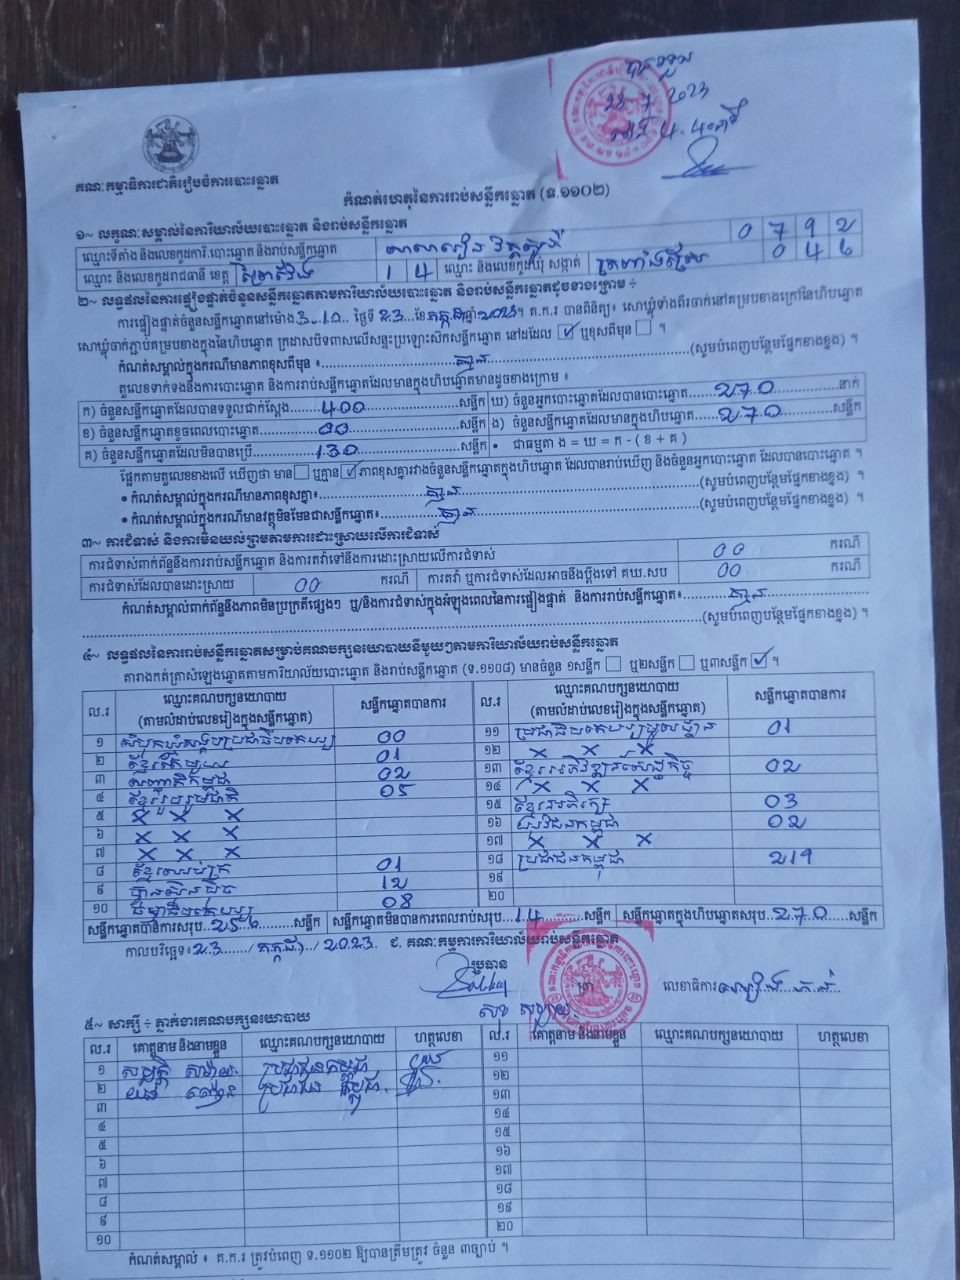 បានទទួល
23 7 2023
គណៈកម្មាធិការជាតិរៀបចំការបោះឆ្នោត
កំណត់ហេតុនៃការរាប់សន្លឹកឆ្នោត (ទ.១១០២)
១~ លក្ខណៈសម្គាល់នៃការិយាល័យបោះឆ្នោត និងរាប់សន្លឹកឆ្នោត
ឈ្មោះទីតាំង និងលេខកូដការិ.បោះឆ្នោត និងរាប់សន្លឹកឆ្នោត 0 7 9 2
ឈ្មោះ និងលេខកូដរាជធានី ខេត្ត ព្រៃវែង 1 4 ឈ្មោះ និងលេខកូដឃុំ សង្កាត់ 0 4 6
២~ លទ្ធផលនៃការផ្ទៀងផ្ទាត់ចំនួនសន្លឹកឆ្នោតតាមការិយាល័យបោះឆ្នោត និងរាប់សន្លឹកឆ្នោតដូចខាងក្រោម ÷
ការផ្ទៀងផ្ទាត់ចំនួនសន្លឹកឆ្នោតនៅម៉ោង 3.10 ថ្ងៃទី 23 ខែកក្កដា ឆ្នាំ 2023។ គ.ក.រ បានពិនិត្យ៖ សោឃ្លុំទាំងពីរចាក់នៅគម្របខាងក្រៅនៃហិបឆ្នោត
សោឃ្លុំចាក់ភ្ជាប់គម្របខាងក្នុងនៃហិបឆ្នោត ក្រដាសបិទពាសលើសន្ទះប្រឡោះស៊កសន្លឹកឆ្នោត នៅដដែល ✓ ឬខុសពីមុន ។
កំណត់សម្គាល់ក្នុងករណីមានភាពខុសពីមុន ៖ គ្មាន (សូមបំពេញបន្ថែមផ្នែកខាងខ្នង) ។
តួលេខទាក់ទងនឹងការបោះឆ្នោត និងការរាប់សន្លឹកឆ្នោតដែលមានក្នុងហិបឆ្នោតមានដូចខាងក្រោម ៖
ក) ចំនួនសន្លឹកឆ្នោតដែលបានទទួលជាក់ស្តែង 400 សន្លឹក ឃ) ចំនួនអ្នកបោះឆ្នោតដែលបានបោះឆ្នោត 270 នាក់
ខ) ចំនួនសន្លឹកឆ្នោតខូចពេលបោះឆ្នោត 00 សន្លឹក ង) ចំនួនសន្លឹកឆ្នោតដែលមានក្នុងហិបឆ្នោត 270 សន្លឹក
គ) ចំនួនសន្លឹកឆ្នោតដែលមិនបានប្រើ 130 សន្លឹក • ជាធម្មតា ង = ឃ = ក - ( ខ + គ )
ផ្អែកតាមតួលេខខាងលើ ឃើញថា មាន ឬគ្មាន ✓ ភាពខុសគ្នារវាងចំនួនសន្លឹកឆ្នោតក្នុងហិបឆ្នោត ដែលបានរាប់ឃើញ និងចំនួនអ្នកបោះឆ្នោត ដែលបានបោះឆ្នោត ។
• កំណត់សម្គាល់ក្នុងករណីមានភាពខុសគ្នា៖ គ្មាន (សូមបំពេញបន្ថែមផ្នែកខាងខ្នង) ។
• កំណត់សម្គាល់ក្នុងករណីមានវត្ថុមិនមែនជាសន្លឹកឆ្នោត៖ គ្មាន (សូមបំពេញបន្ថែមផ្នែកខាងខ្នង) ។
៣~ ការជំទាស់ និងការមិនយល់ព្រមតាមការដោះស្រាយលើការជំទាស់
ការជំទាស់ពាក់ព័ន្ធនឹងការរាប់សន្លឹកឆ្នោត និងការតវ៉ាទៅនឹងការដោះស្រាយលើការជំទាស់ 00 ករណី
ការជំទាស់ដែលបានដោះស្រាយ 00 ករណី ការតវ៉ា ឬការជំទាស់ដែលអាចនឹងប្តឹងទៅ គឃ.សប 00 ករណី
កំណត់សម្គាល់ពាក់ព័ន្ធនឹងភាពមិនប្រក្រតីផ្សេងៗ ឬ/និងការជំទាស់ក្នុងអំឡុងពេលនៃការផ្ទៀងផ្ទាត់ និងការរាប់សន្លឹកឆ្នោត៖ គ្មាន
(សូមបំពេញបន្ថែមផ្នែកខាងខ្នង) ។
៤~ លទ្ធផលនៃការរាប់សន្លឹកឆ្នោតសម្រាប់គណបក្សនយោបាយនីមួយៗតាមការិយាល័យរាប់សន្លឹកឆ្នោត
តារាងកត់ត្រាសំឡេងឆ្នោតតាមការិយាល័យបោះឆ្នោត និងរាប់សន្លឹកឆ្នោត (ទ.១១០៨) មានចំនួន ១សន្លឹក ឬ២សន្លឹក ឬ៣សន្លឹក ✓ ។
ល.រ ឈ្មោះគណបក្សនយោបាយ (តាមលំដាប់លេខរៀងក្នុងសន្លឹកឆ្នោត) សន្លឹកឆ្នោតបានការ ល.រ ឈ្មោះគណបក្សនយោបាយ (តាមលំដាប់លេខរៀងក្នុងសន្លឹកឆ្នោត) សន្លឹកឆ្នោតបានការ
១ សំបុកឃ្មុំសង្គមប្រជាធិបតេយ្យ 00 ១១ ប្រជាធិបតេយ្យមូលដ្ឋាន 01
២ ខ្មែរតែមួយ 01 ១២ X X X
៣ សញ្ជាតិកម្ពុជា 02 ១៣ ខ្មែរអភិវឌ្ឍន៍សេដ្ឋកិច្ច 02
៤ ខ្មែររួបរួមជាតិ 05 ១៤ X X X
៥ X X X ១៥ ខ្មែរអភិរក្ស 03
៦ X X X ១៦ យុវជនកម្ពុជា 02
៧ X X X ១៧ X X X
៨ ខ្មែរឈប់ក្រ 01 ១៨ ប្រជាជនកម្ពុជា 219
៩ ហ្វ៊ុនស៊ិនប៉ិច 12 ១៩
១០ ធម្មាធិបតេយ្យ 08 ២០
សន្លឹកឆ្នោតបានការសរុប 256 សន្លឹក សន្លឹកឆ្នោតមិនបានការពេលរាប់សរុប 14 សន្លឹក សន្លឹកឆ្នោតក្នុងហិបឆ្នោតសរុប 270 សន្លឹក
កាលបរិច្ឆេទ៖ 23 / កក្កដា / 2023 ជ. គណៈកម្មការការិយាល័យរាប់សន្លឹកឆ្នោត
ប្រធាន លេខាធិការ
៥~ សាក្សី ÷ ភ្នាក់ងារគណបក្សនយោបាយ
ល.រ គោត្តនាម និងនាមខ្លួន ឈ្មោះគណបក្សនយោបាយ ហត្ថលេខា ល.រ គោត្តនាម និងនាមខ្លួន ឈ្មោះគណបក្សនយោបាយ ហត្ថលេខា
១ ប្រជាជនកម្ពុជា ១១
២ ប្រជាជនកម្ពុជា ១២
៣ ១៣
៤ ១៤
៥ ១៥
៦ ១៦
៧ ១៧
៨ ១៨
៩ ១៩
១០ ២០
កំណត់សម្គាល់ ៖ គ.ក.រ ត្រូវបំពេញ ទ.១១០២ ឱ្យបានត្រឹមត្រូវ ចំនួន ៣ច្បាប់ ។